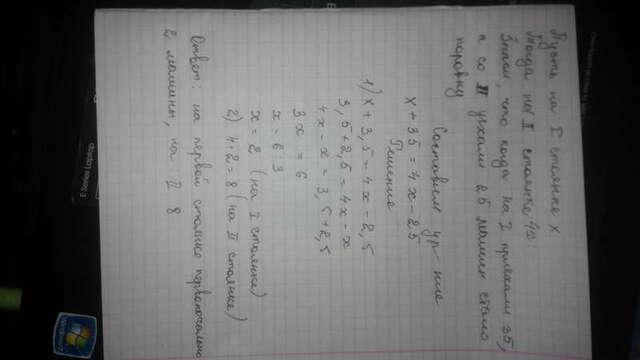 Пусть на I стоянке x.
Тогда на II стоянке 4x.
Зная, что когда на I приехали 35,
а со II уехали 25 машин стало
поровну
Составим ур-ние
x + 35 = 4x - 25
Решение
1) x + 3,5 = 4x - 2,5
3,5 + 2,5 = 4x - x
4x - x = 3,5 + 2,5
3x = 6
x = 6 : 3
x = 2 (на I стоянке)
2) 4·2 = 8 (на II стоянке)
Ответ: на первой стоянке первоначально
2 машины, на II 8
E Series Laptop